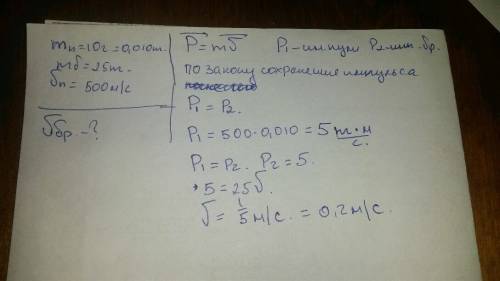 mп=10г=0,010т.
mб=25т.
υп=500м/с
υбр.-?
P=mυ P₁-импулс P₂-имп.бр.
по закону сохранение импульса
P₁=P₂.
P₁=500·0,010=5 т·м/с.
P₁=P₂. P₂=5.
5=25υ
υ=1/5 м/с.=0,2м/с.